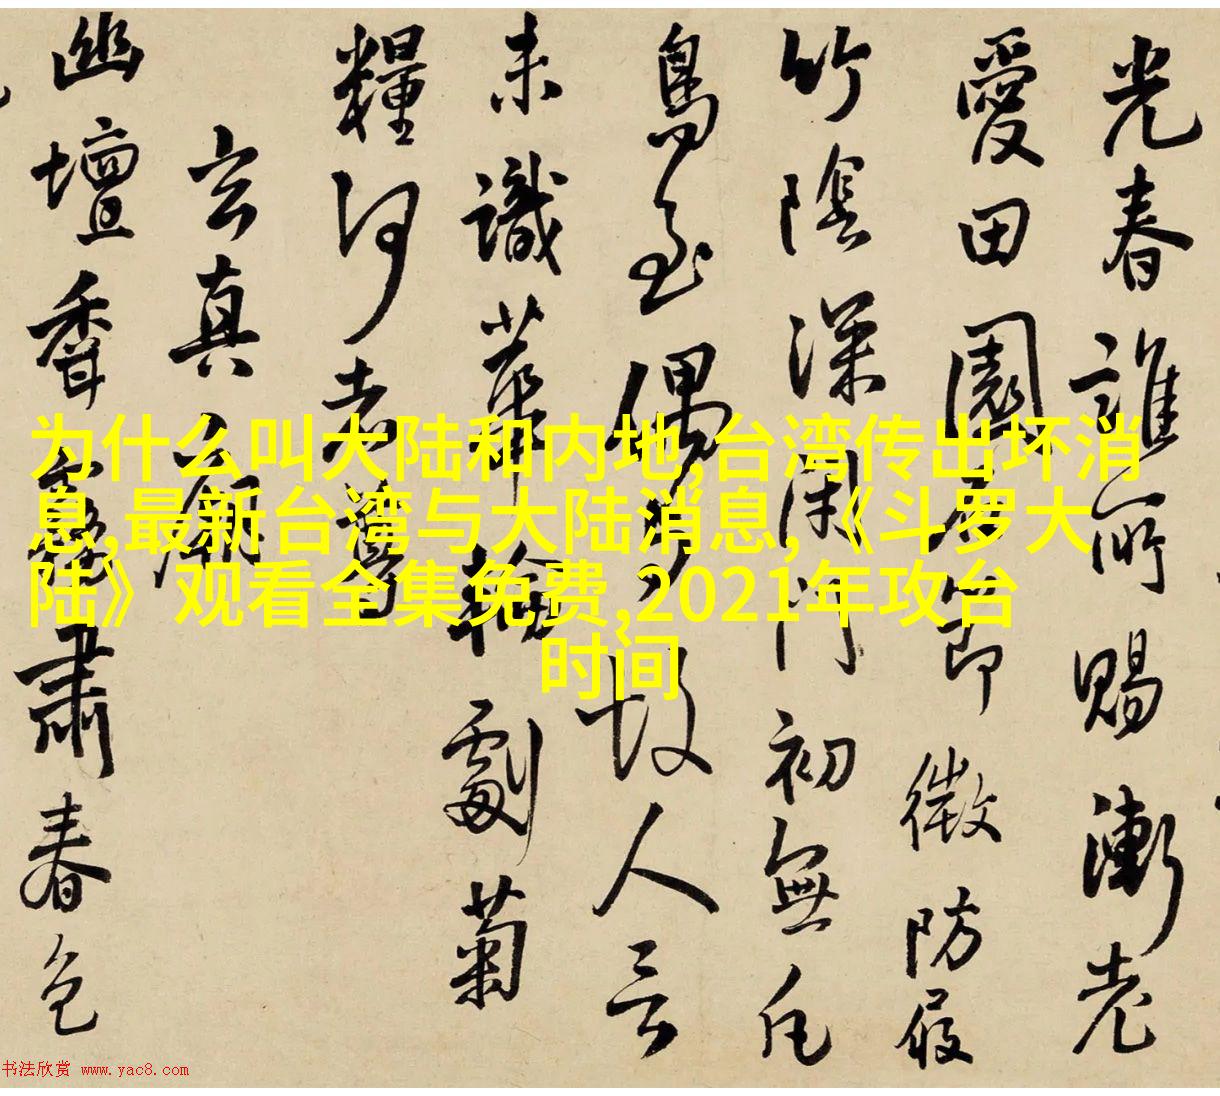 为什么叫大陆和内地,台湾传出坏消
息,最新台湾与大陆消息,《斗罗大
陆》观看全集免费,2021年攻台
时间
光春誰所賜漸老
愛田園節微防屐
竹陰深閉門初無凡
鳥至偶故人言
未識華輪劇菊
糧何老
玄真
幽壇肅春色
书法欣赏 www.yac8.com